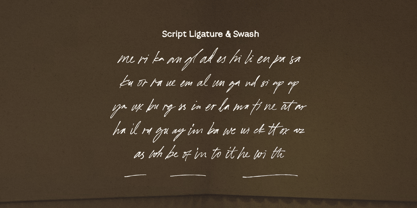 Script Ligature & Swash
me ri ka an gl all es hi li en pa sa
ku or ra ue em al un ga nd si ap op
ya ux bu rg us in er la ma fi ne at ar
ha il ru qu ay im ba we us ck tt or az
as wh be of in to it he wi th